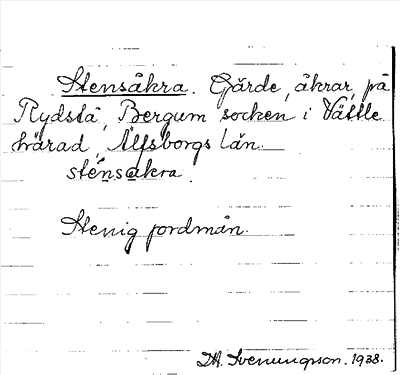 Stensåkra. Gärde, åkrar, på
Rydstä, Bergum socken i Vättle
härad, Älfsborgs län.
sténsakra.
Stenig jordmån.
Th. Svenungsson. 1938.